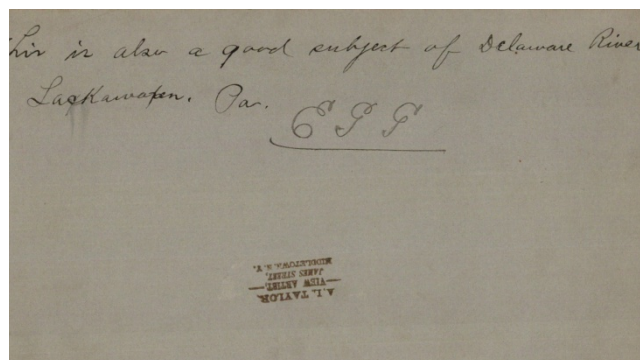 his is also a good subject of Delaware River
Lackawaxen. Pa.
A. L. TAYLOR,
VIEW ARTIST.
JAMES STREET,
MIDDLETOWN, N. Y.